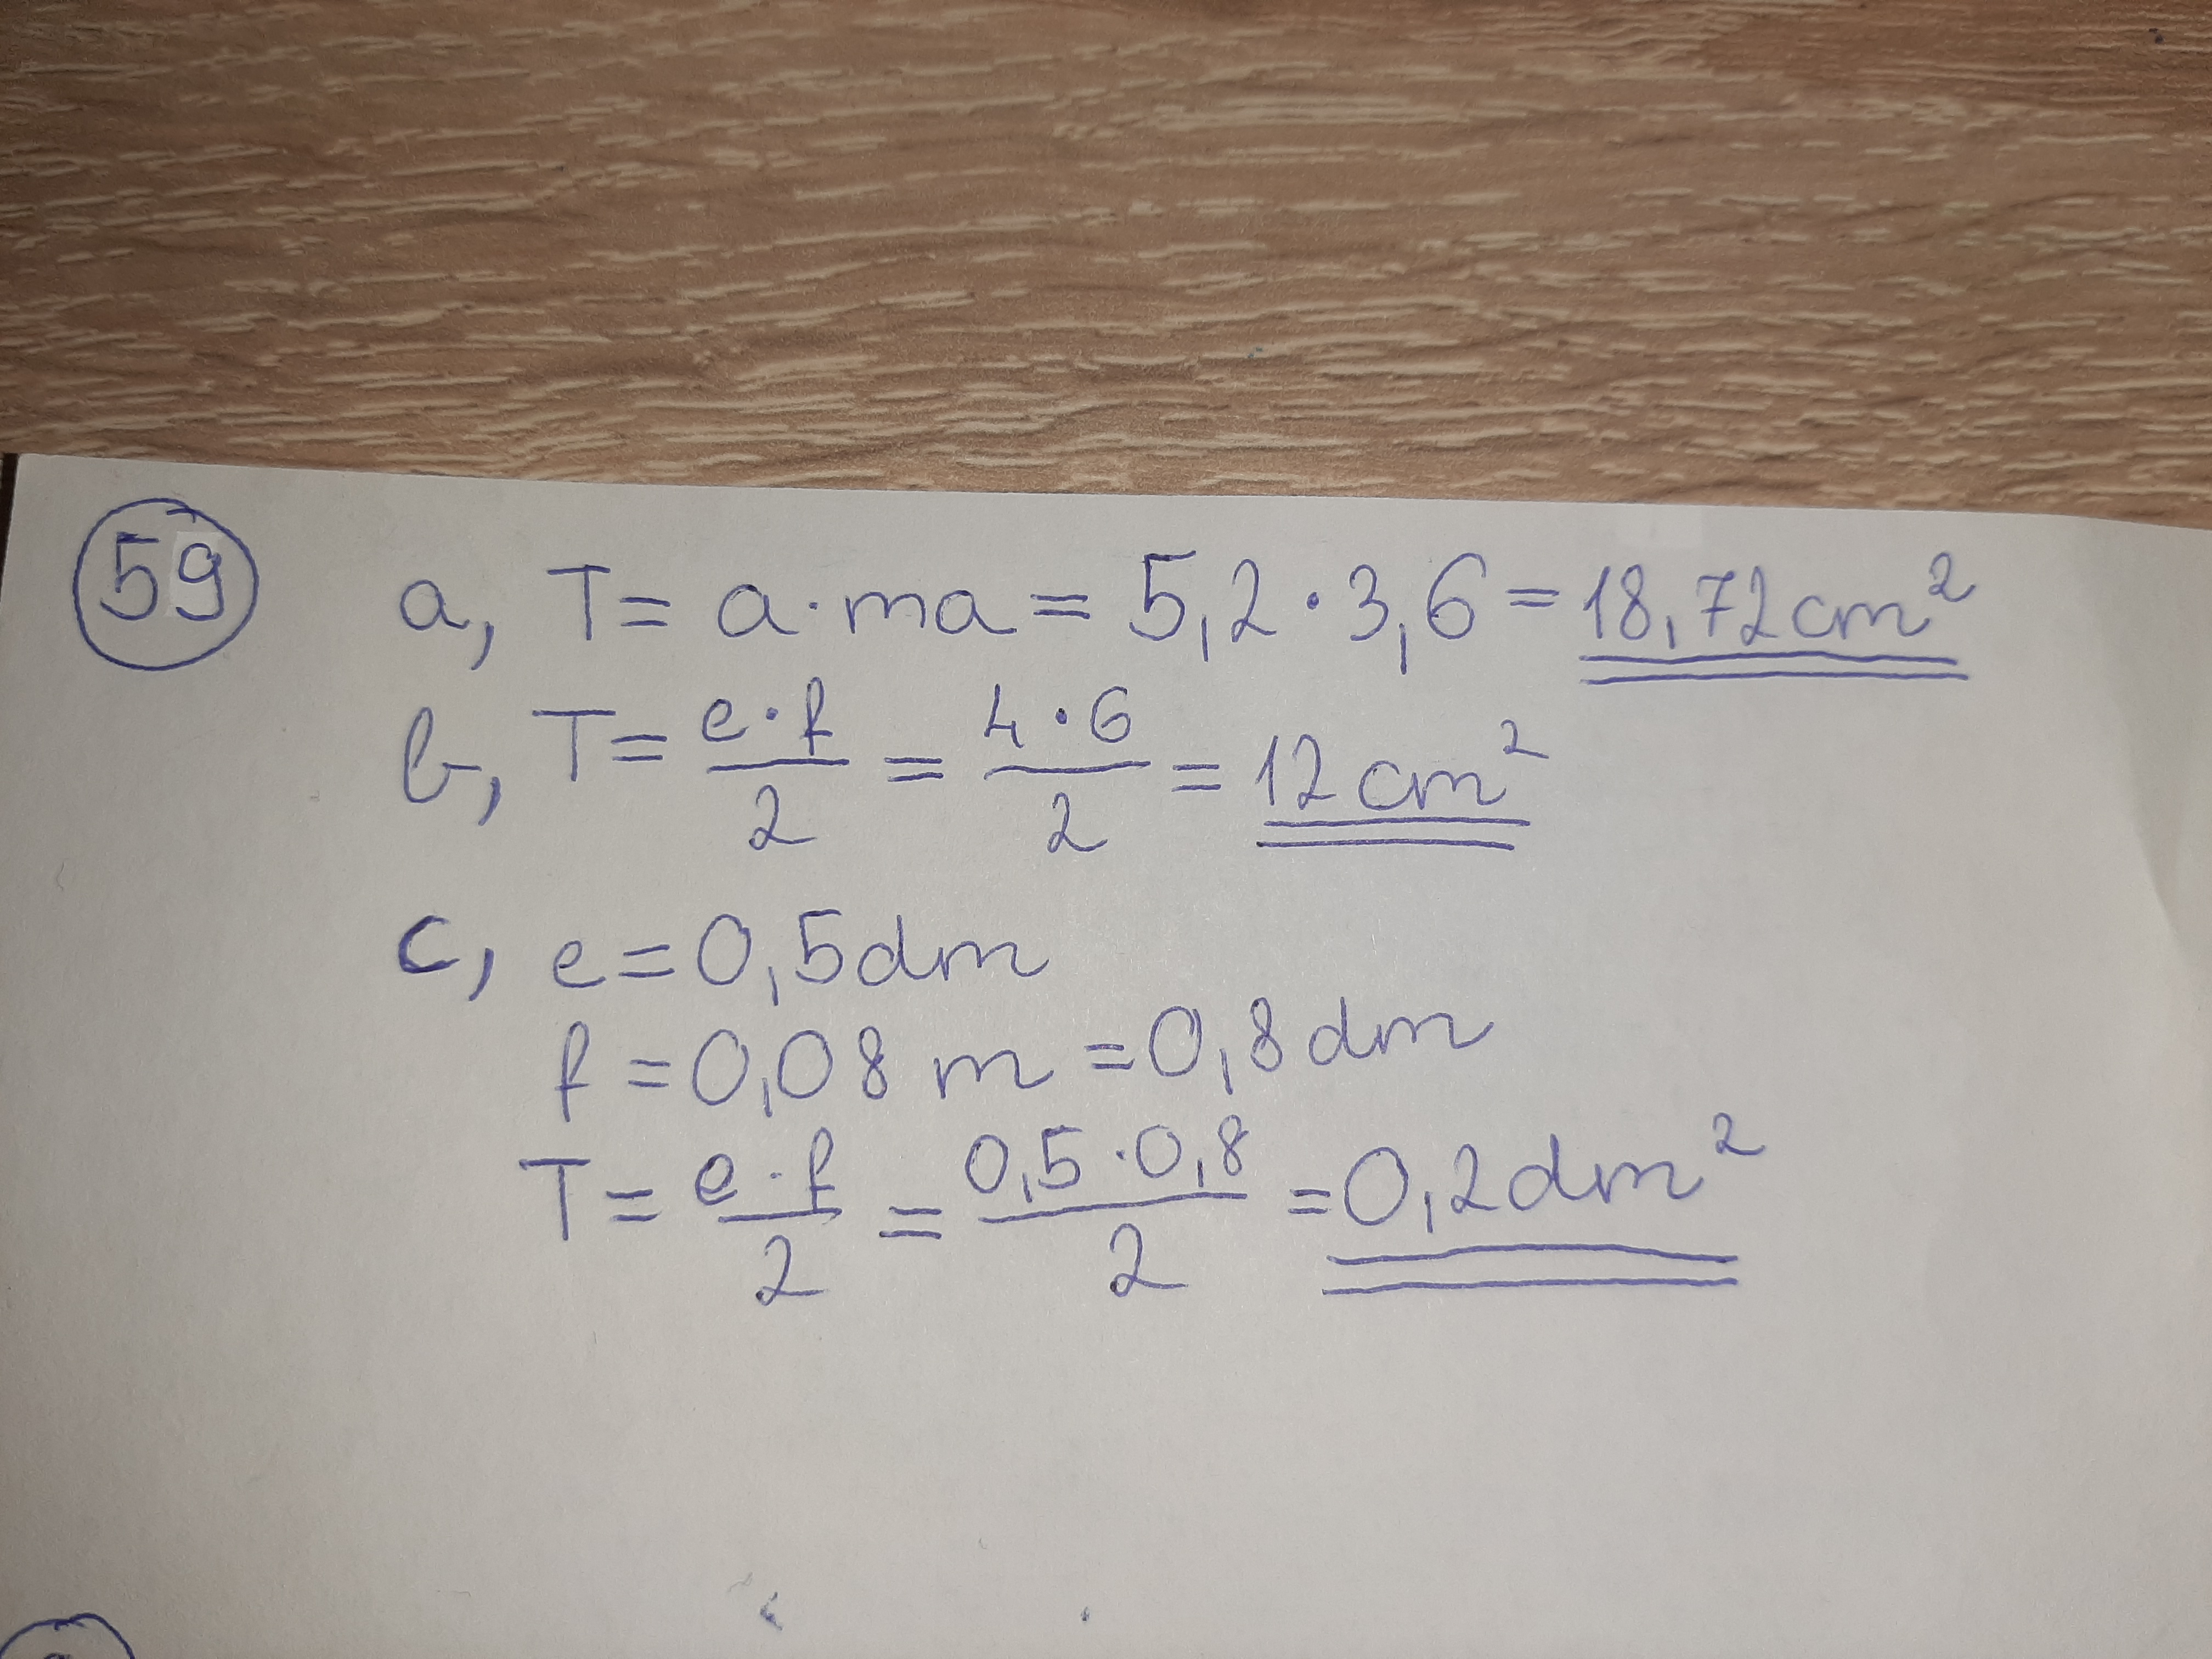 59 a, T = a·ma = 5,2·3,6 = 18,72cm²
b, T = e·f/2 = 4·6/2 = 12cm²
c, e = 0,5dm
f = 0,08 m = 0,8dm
T = e·f/2 = 0,5·0,8/2 = 0,2dm²